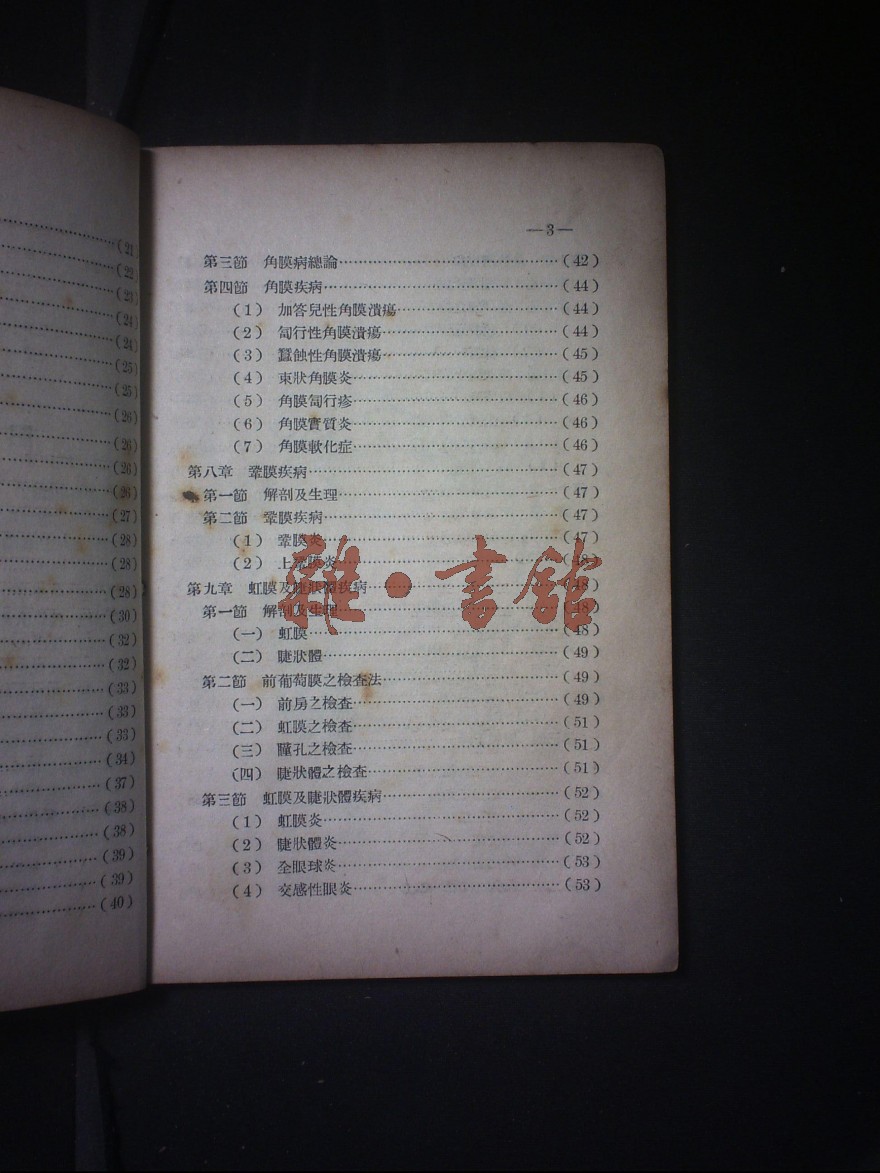 (21
(22
(23
(24
(24
(25
(25
(26
(26
(26
(26)
(27)
(28)
(28)
(28)
(30)
(32)
(32)
(33)
(33)
(33)
(34)
(37)
(38)
(38)
(39)
(39)
(40)
—3—
第三節 角膜病總論……(42)
第四節 角膜疾病……(44)
(1) 加答兒性角膜潰瘍……(44)
(2) 匐行性角膜潰瘍……(44)
(3) 蠶蝕性角膜潰瘍……(45)
(4) 束狀角膜炎……(45)
(5) 角膜匐行疹……(46)
(6) 角膜實質炎……(46)
(7) 角膜軟化症……(46)
第八章 鞏膜疾病……(47)
第一節 解剖及生理……(47)
第二節 鞏膜疾病……(47)
(1) 鞏膜炎……(47)
(2) 上鞏膜炎……(48)
第九章 虹膜及睫狀體疾病……(48)
第一節 解剖及生理……(48)
(一) 虹膜……(48)
(二) 睫狀體……(49)
第二節 前葡萄膜之檢查法……(49)
(一) 前房之檢查……(49)
(二) 虹膜之檢查……(51)
(三) 瞳孔之檢查……(51)
(四) 睫狀體之檢查……(51)
第三節 虹膜及睫狀體疾病……(52)
(1) 虹膜炎……(52)
(2) 睫狀體炎……(52)
(3) 全眼球炎……(53)
(4) 交感性眼炎……(53)
雜·書館